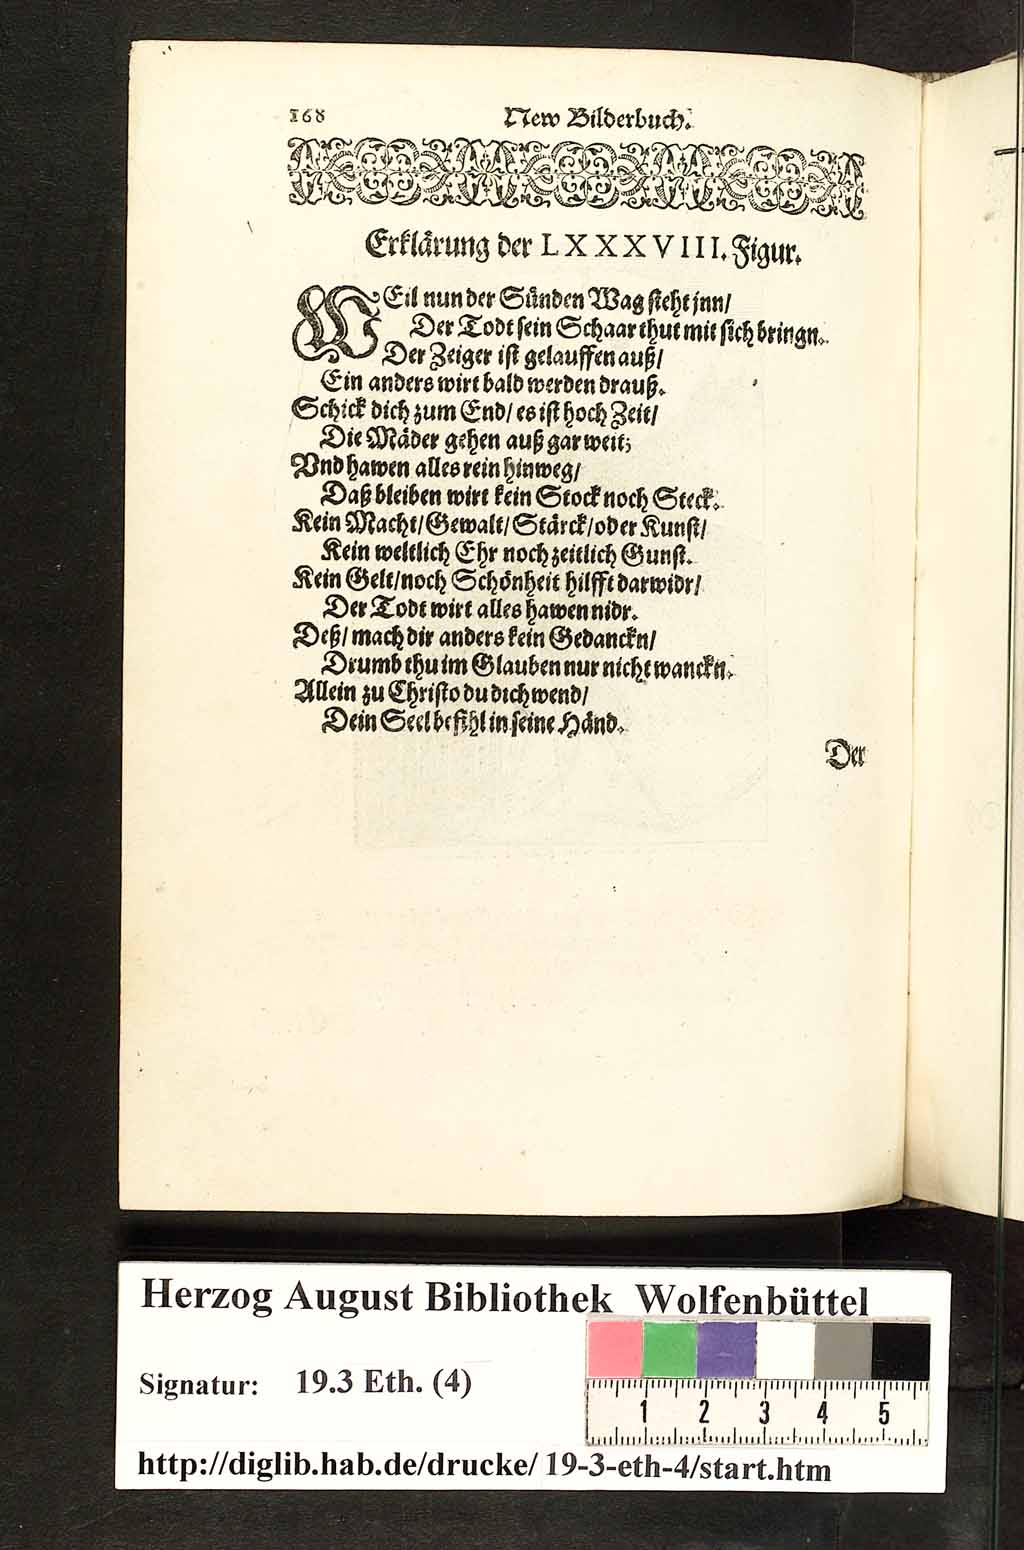 168
New Bilderbuch.
Erklärung der LXXXVIII. Figur.
WEil nun der Sünden Wag steht jnn/
Der Todt sein Schaar thut mit sich bringn.
Der Zeiger ist gelauffen auß/
Ein anders wirt bald werden drauß.
Schick dich zum End/ es ist hoch Zeit/
Die Mäder gehen auß gar weit;
Vnd hawen alles rein hinweg/
Daß bleiben wirt kein Stock noch Steck.
Kein Macht/ Gewalt/ Stärck/ oder Kunst/
Kein weltlich Ehr noch zeitlich Gunst.
Kein Gelt/ noch Schönheit hilfft darwidr/
Der Todt wirt alles hawen nidr.
Deß/ mach dir anders kein Gedanckn/
Drumb thu im Glauben nur nicht wanckn.
Allein zu Christo du dich wend/
Dein Seel befihl in seine Händ.
Der
Herzog August Bibliothek Wolfenbüttel
Signatur: 19.3 Eth. (4)
1 2 3 4 5
http://diglib.hab.de/drucke/ 19-3-eth-4/start.htm